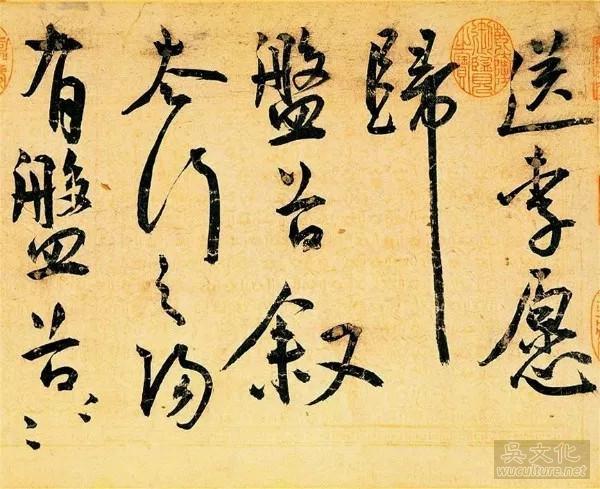 送李愿
歸
盤谷叙
太行之陽
有盤谷〻〻
吳文化
www.wuculture.net